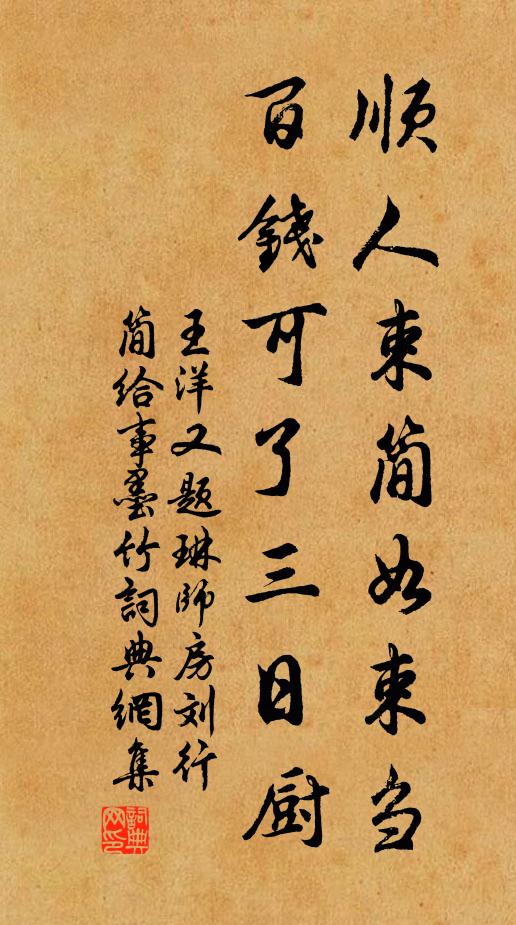 順人束简如束刍
百錢可了三日厨
王洋又题琳師房刘行
简给事墨竹詞典網集
詞典网印